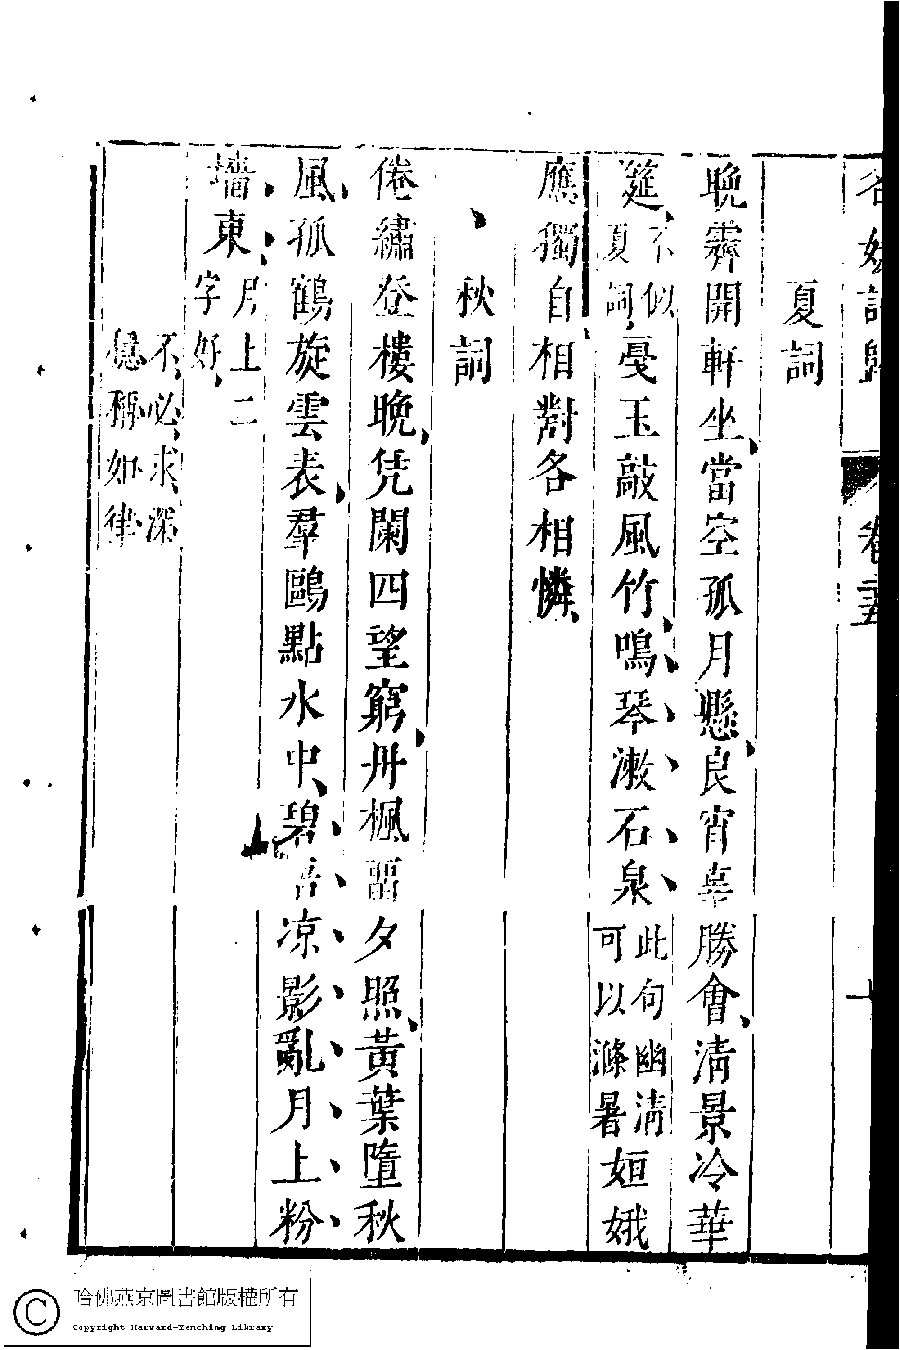 名媛詩歸 卷二五
夏詞
晚霽開軒坐當空孤月懸良宵辜勝會清景冷華
筵不似夏詞戞玉敲風竹鳴琴漱石泉此句幽清可以滌暑姮娥
應獨自相對各相憐
秋詞
倦繡登樓晚凭闌四望窮丹楓留夕照黃葉墮秋
風孤鶴旋雲表羣鷗點水中碧梧凉影亂月上粉
墻東月上二字好
不必求深
穩稱如律
哈佛燕京圖書館版權所有
Copyright Harvard-Yenching Library